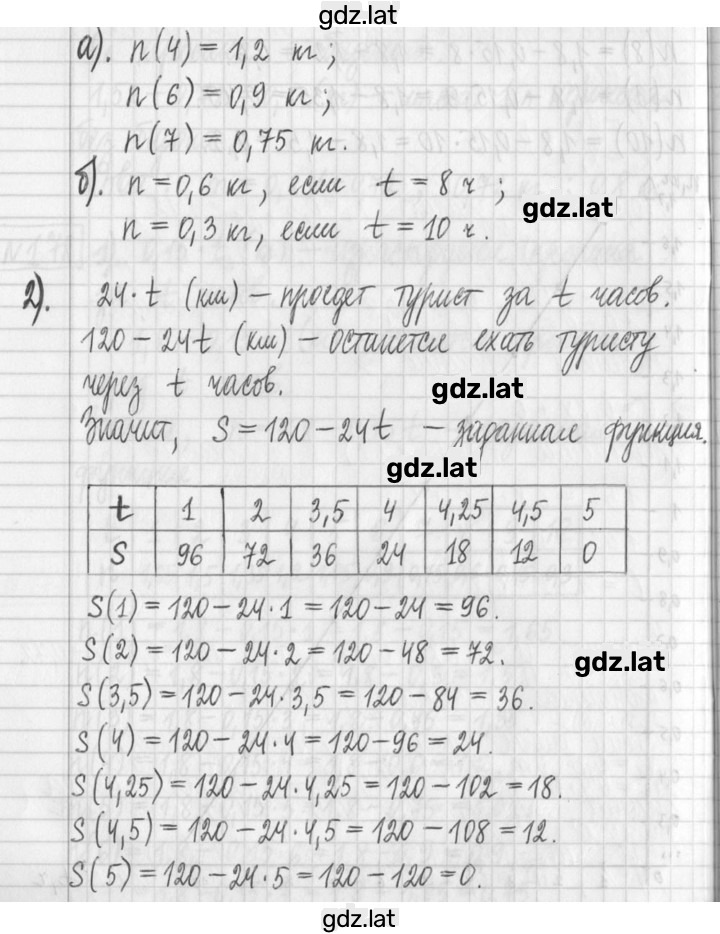 gdz.lat
а). n(4) = 1,2 кг;
n(6) = 0,9 кг;
n(7) = 0,75 кг.
б). n = 0,6 кг, если t = 8 ч;
gdz.lat
n = 0,3 кг, если t = 10 ч.
2). 24·t (км) – проедет турист за t часов.
120 – 24t (км) – останется ехать туристу
через t часов.
gdz.lat
Значит, S = 120 – 24t – заданная функция.
gdz.lat
t 1 2 3,5 4 4,25 4,5 5
S 96 72 36 24 18 12 0
S(1) = 120 – 24·1 = 120 – 24 = 96.
S(2) = 120 – 24·2 = 120 – 48 = 72.
gdz.lat
S(3,5) = 120 – 24·3,5 = 120 – 84 = 36.
S(4) = 120 – 24·4 = 120 – 96 = 24.
S(4,25) = 120 – 24·4,25 = 120 – 102 = 18.
S(4,5) = 120 – 24·4,5 = 120 – 108 = 12.
S(5) = 120 – 24·5 = 120 – 120 = 0.
gdz.lat